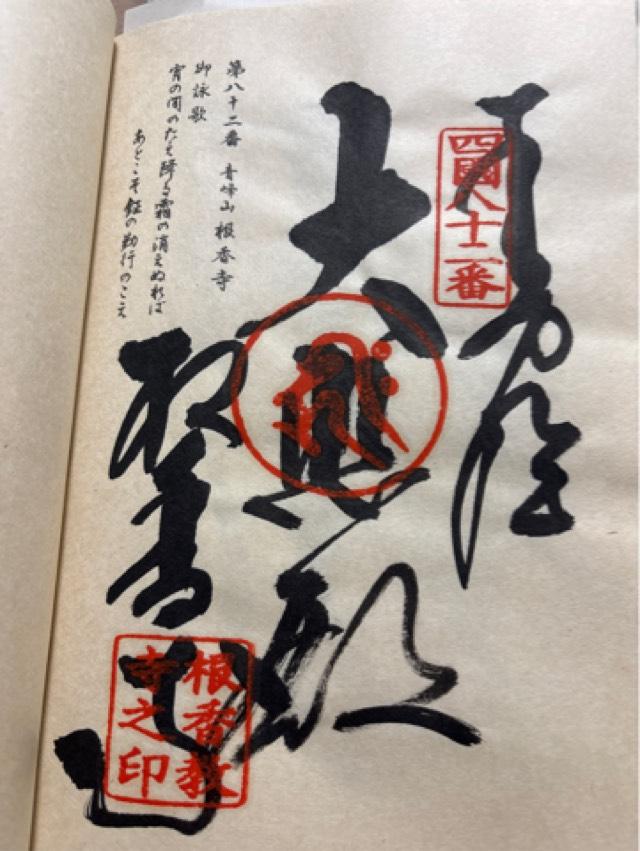 四國八十二番
大悲殿
第八十二番 青峰山 根香寺
御詠歌
宵の間のたえ降る霜の消えぬれば
あとこそ鉦の勤行のこえ
根香寺
根香教
寺之印